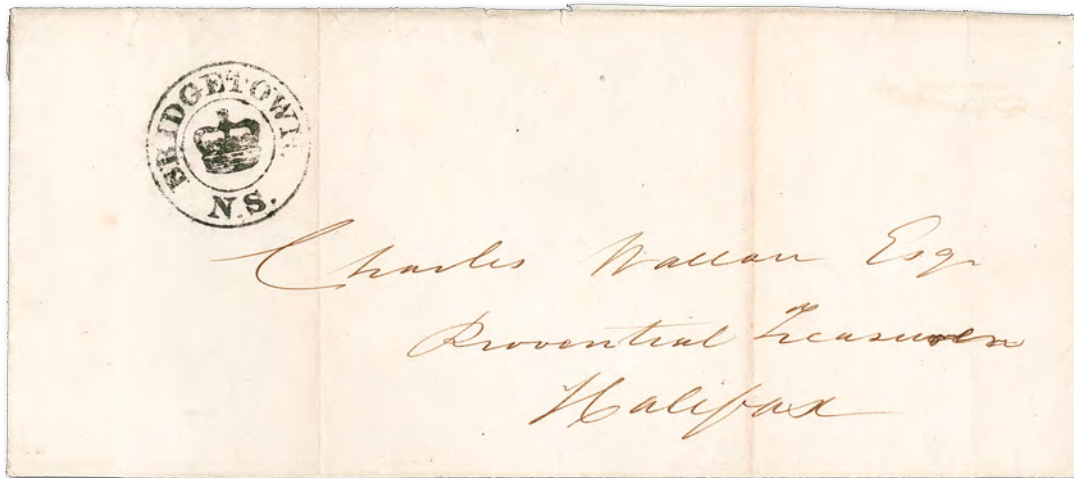 BRIDGETOWN.
N.S.
Charles Wallace Esqr
Provential Treasurer
Halifax